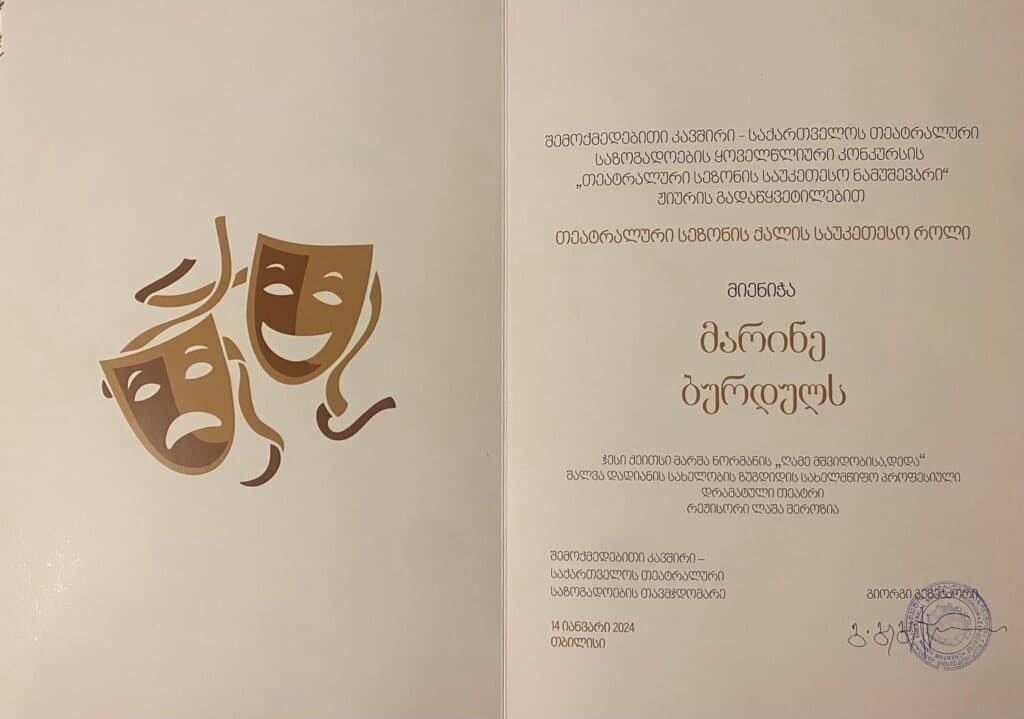 შემოქმედებითი კავშირი - საქართველოს თეატრალური
საზოგადოების ყოველწლიური კონკურსის
„თეატრალური სეზონის საუკეთესო ნამუშევარი“
ჟიურის გადაწყვეტილებით
თეატრალური სეზონის ქალის საუკეთესო როლი
მიენიჭა
მარინე
ბურდულს
ჯესი ქეითსი მარშა ნორმანის „ღამე მშვიდობისა,დედა“
შალვა დადიანის სახელობის ზუგდიდის სახელმწიფო პროფესიული
დრამატული თეატრი
რეჟისორი ლაშა შეროზია
შემოქმედებითი კავშირი –
საქართველოს თეატრალური
საზოგადოების თავმჯდომარე
გიორგი გეგეჭკორი
14 იანვარი 2024
თბილისი